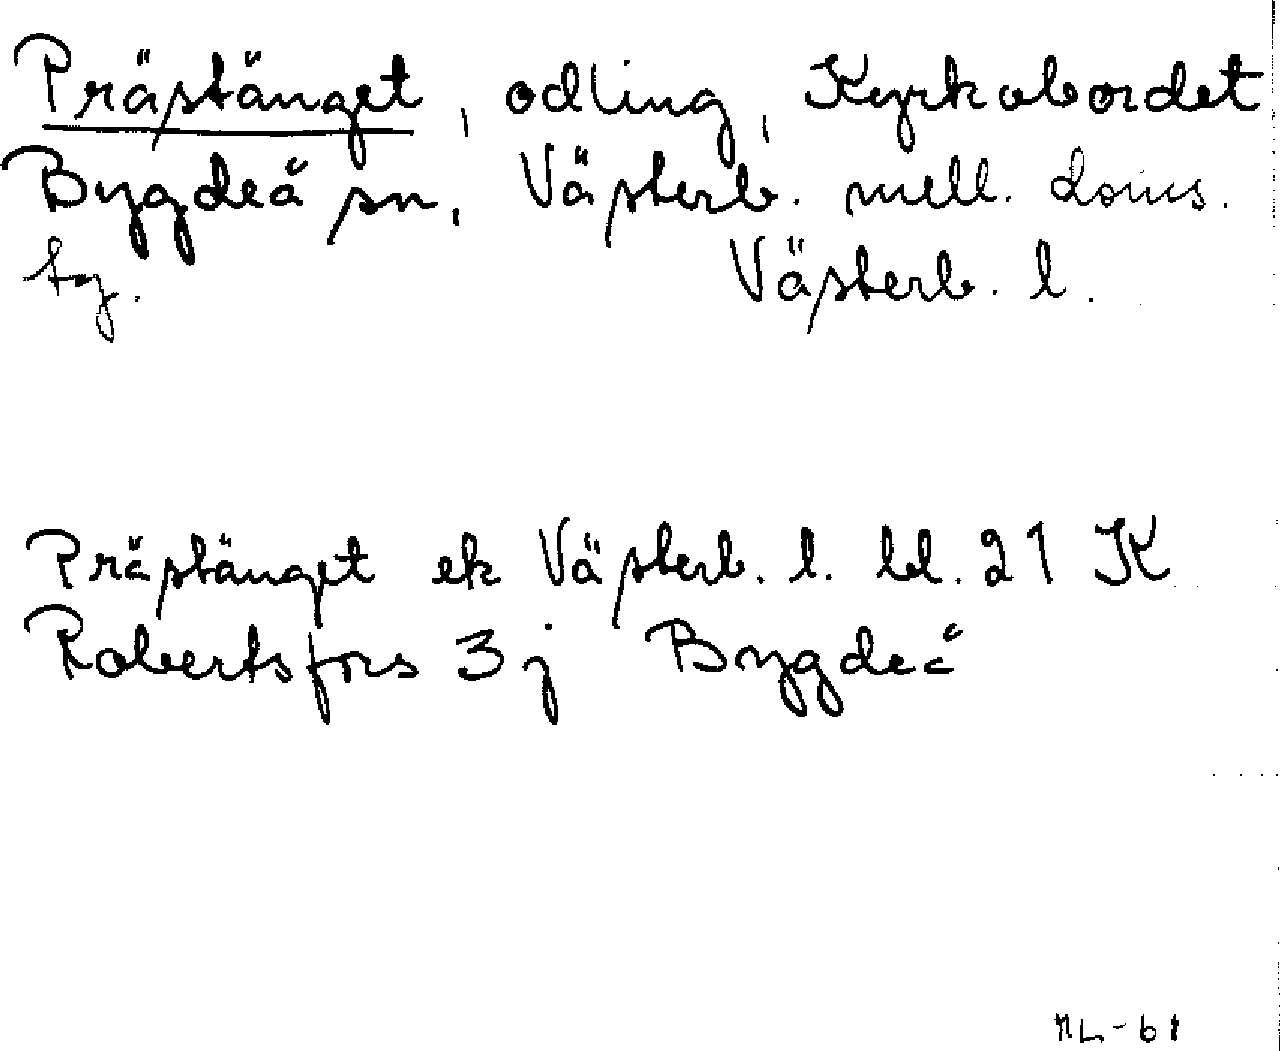 Prästänget, odling, Kyrkobordet
Bygdeå sn, Västerb. mell. doms.
tg. Västerb. l.
Prästänget ek Västerb. l. bl. 21 K
Robertsfors 3 j Bygdeå
NL-61